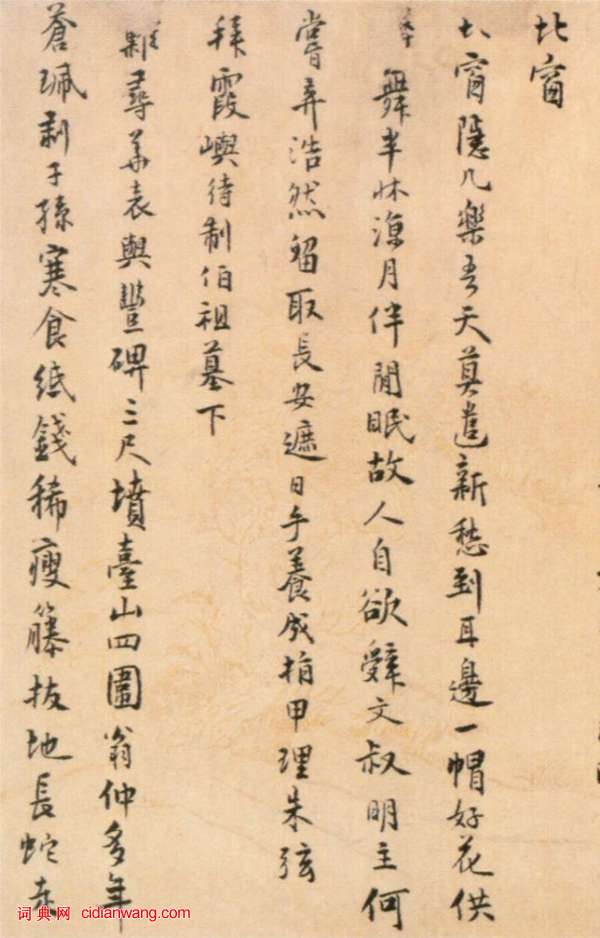 北窗
北窗隱几樂吾天莫遣新愁到耳邊一帽好花供
舞半牀涼月伴閒眠故人自欲舜文叔明主何
嘗棄浩然留取長安遮日手養成指甲理朱弦
拜霞嶼待制伯祖墓下
難尋華表與豐碑三尺墳臺山四圍翁仲多年
蒼珮剥子孫寒食紙錢稀瘦藤拔地長蛇
词典网 cidianwang.com